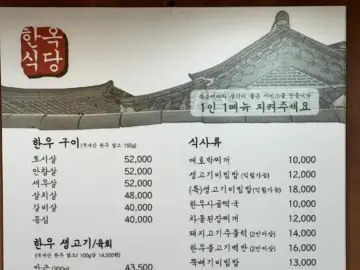 한옥
식당
작은배려와 생각이 좋은 서비스를 만듭니다
1인 1메뉴 지켜주세요
한우 구이 (국내산 한우 암소 150g)
토시살 52,000
안창살 52,000
새우살 52,000
살치살 48,000
갈비살 40,000
등심 40,000
한우 생고기/육회
(국내산 한우 암소/ 100g당 14,500원)
43,500
식사류
애호박찌개 10,000
생고기비빔밥 (익힘가능) 12,000
(특)생고기비빔밥 (익힘가능) 18,000
한우사골떡국 10,000
차돌된장찌개 12,000
돼지고기주물럭 (2인이상) 14,000
한우불고기백반 (2인이상) 16,000
뚝배기비빔밥 13,000